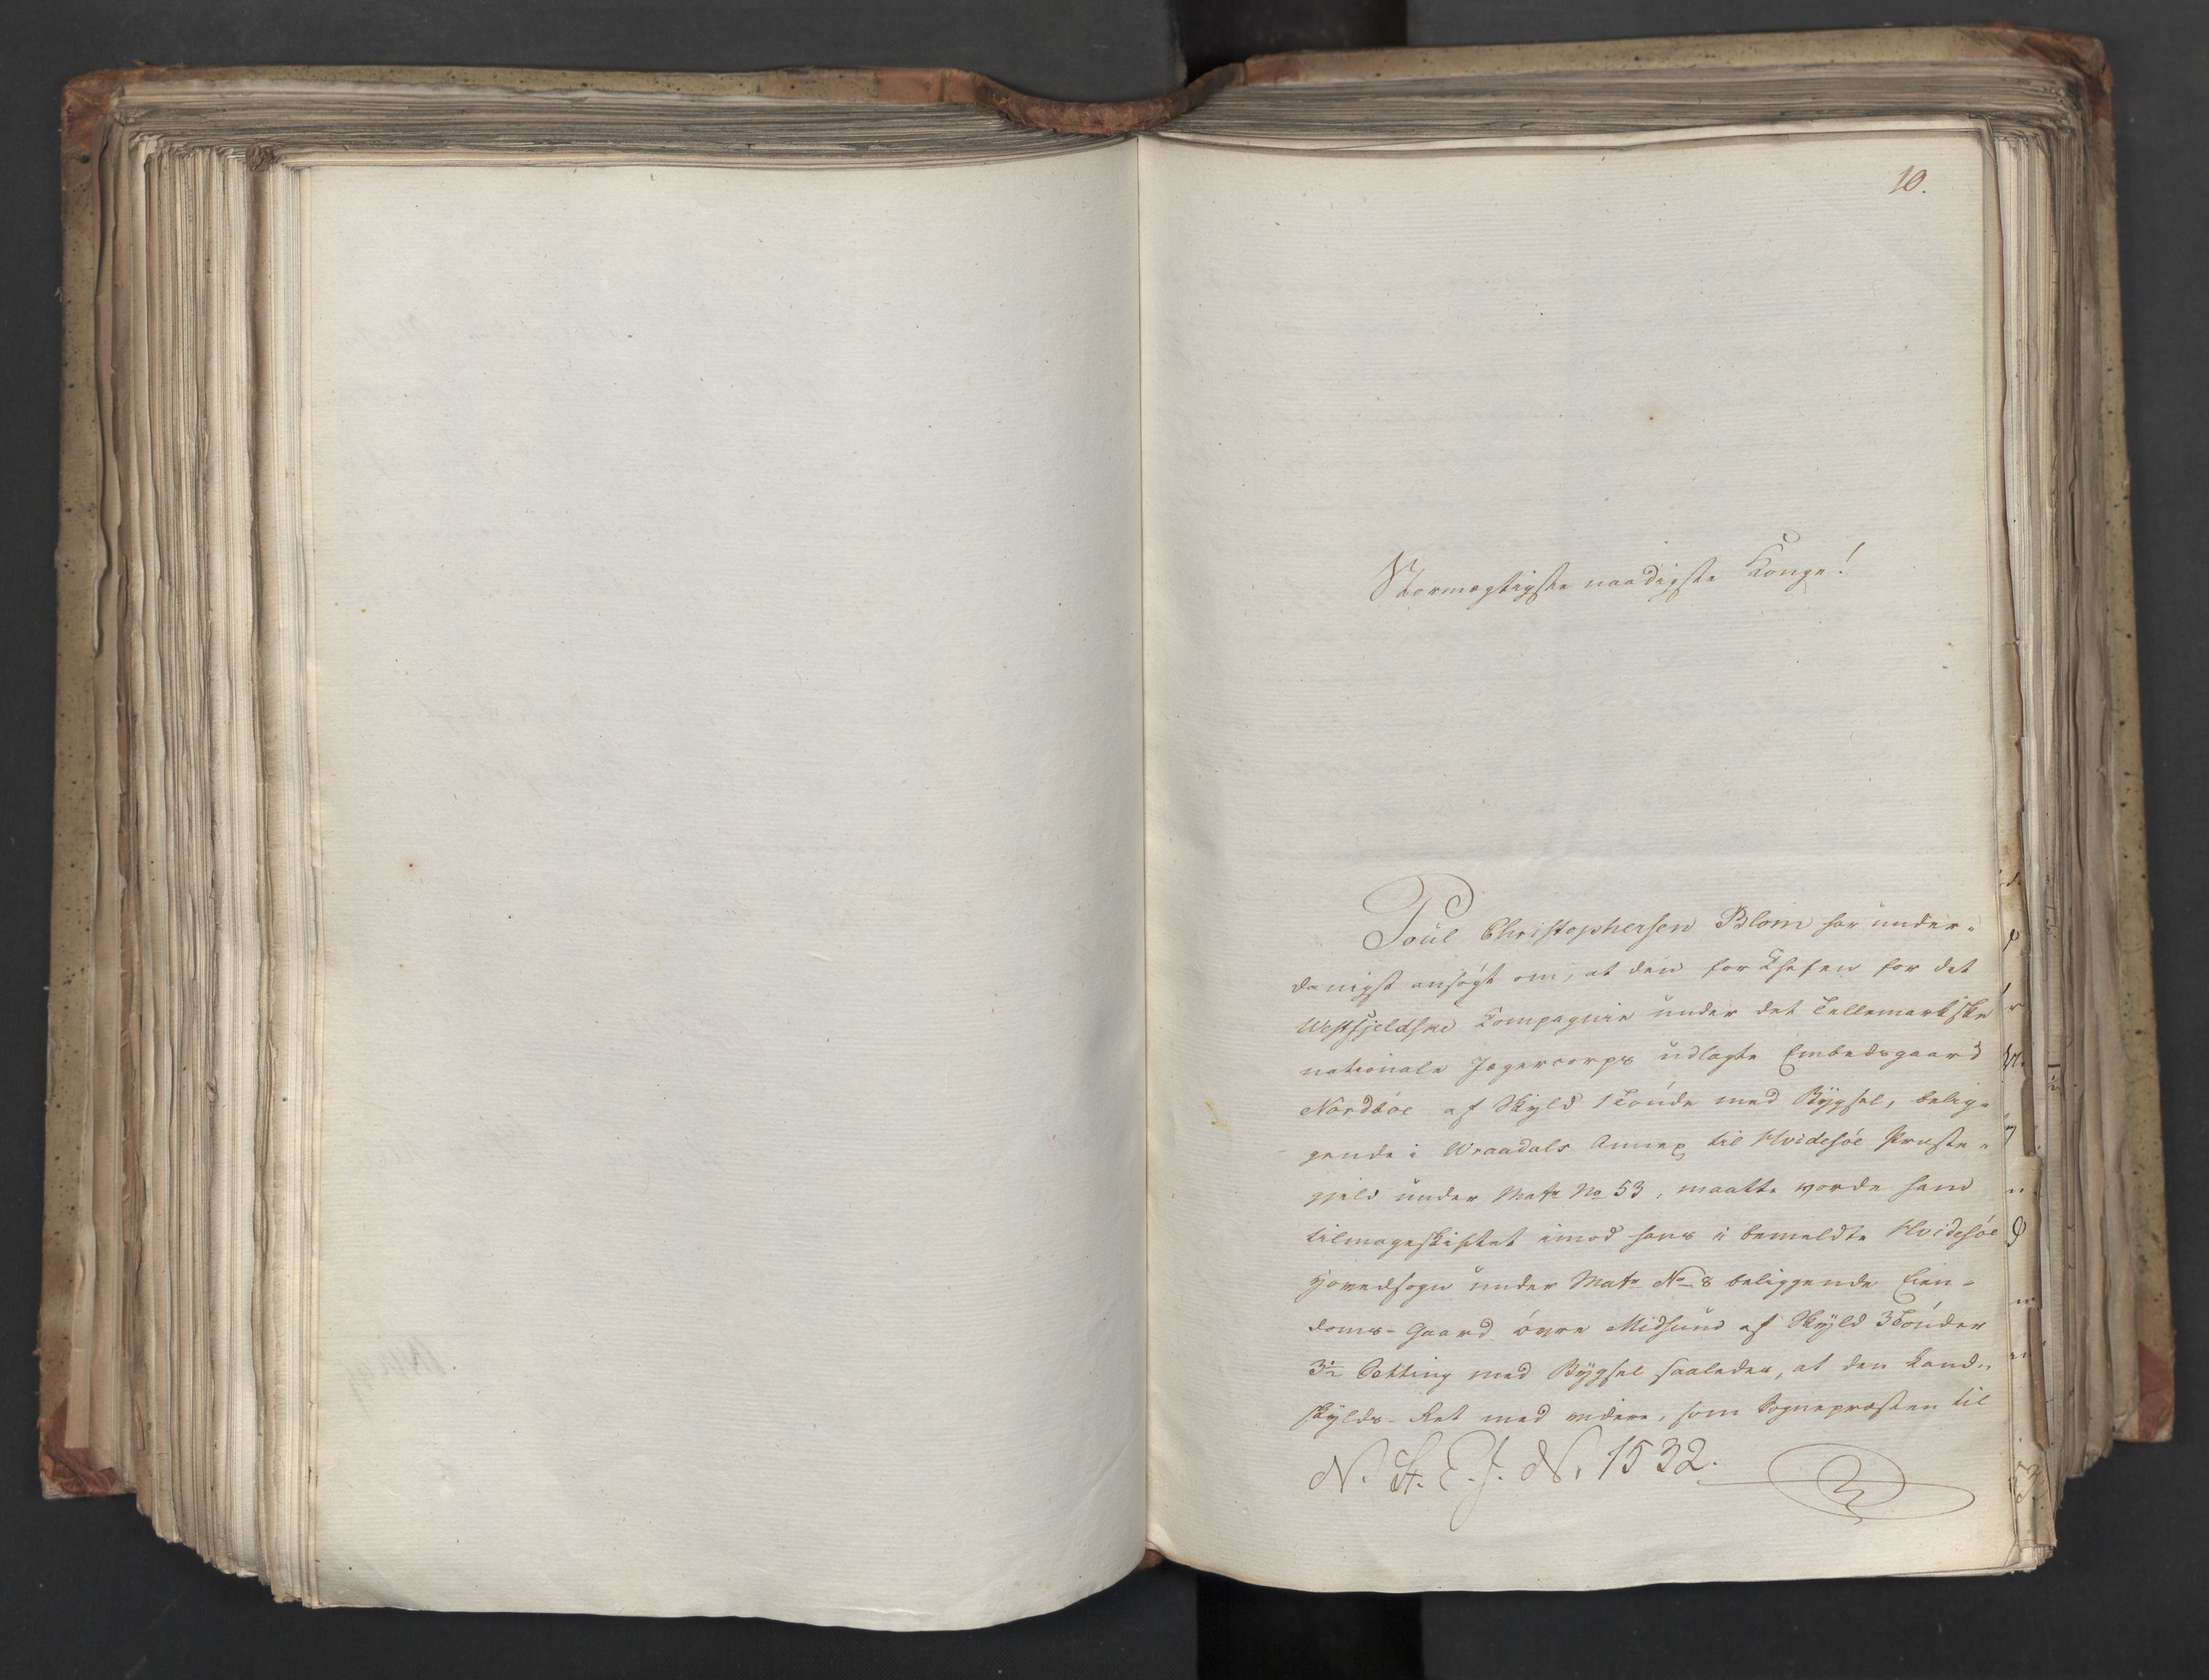 10.
Stormægtigste naadigste Konge!
Poül Christophersen Blom har ünder-
danigst ansøgt om, at den for Chefen for det
Westfjeldske Compagnie ünder det Tellemarkske
nationale Jægercorps üdlagte Embedsgaard
Nordbøe af Skyld 1 Tønde med Bÿgsel, belig-
gende i Wraadals Annex til Hvidesøe Præste-
gjeld ünder Matr No 53, maatte vorde ham
tilmageskiftet imod hans i bemeldte Hvidesøe
Hovedsogn ünder Matr No 8 beliggende Eien-
doms-Gaard øvre Midsund af Skÿld 3 Tønder
3½ Sætting med Bÿgsel saaledes, at den Land-
skÿlds-Ret med videre, som Sognepræsten til
N. St. E. J. N. 1532.